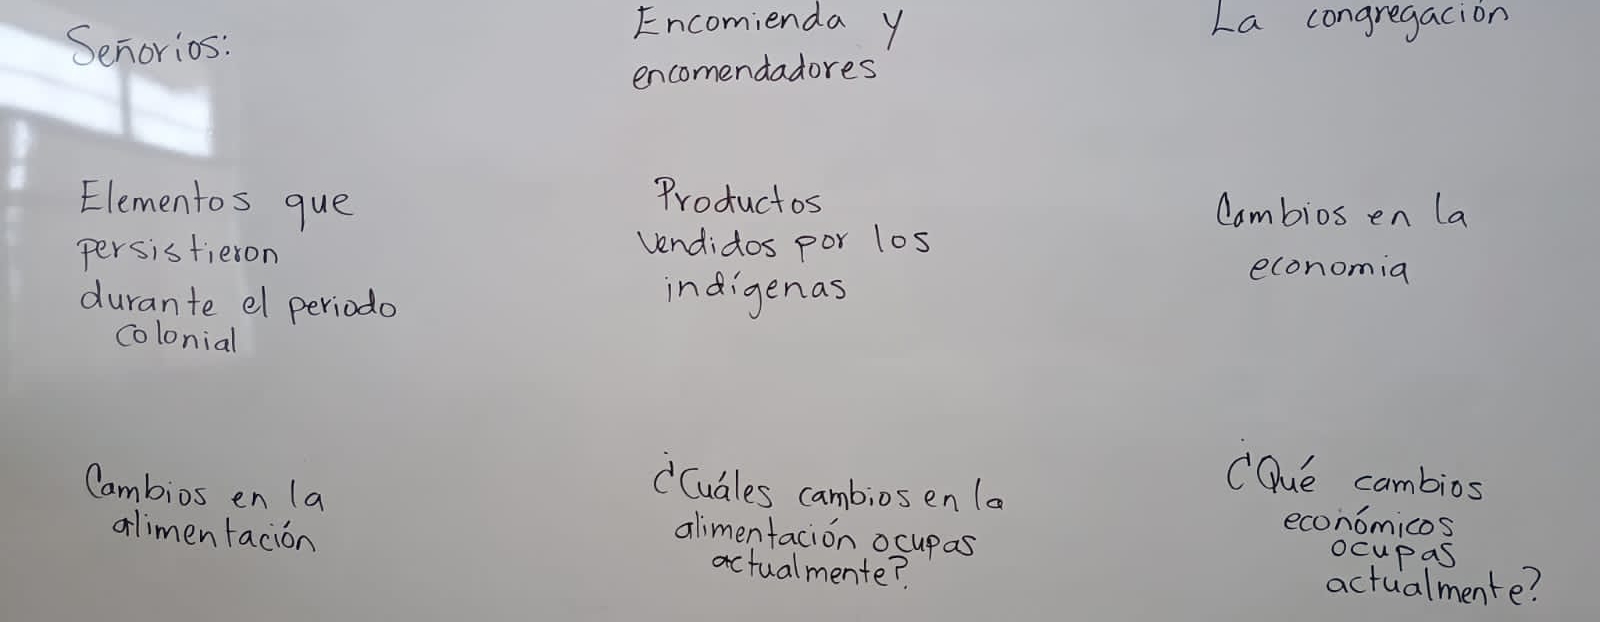 Señorios:
Encomienda y
encomendadores
La congregación
Elementos que
persistieron
durante el periodo
colonial
Productos
vendidos por los
indígenas
Cambios en la
economia
Cambios en la
alimentación
¿Cuáles cambios en la
alimentación ocupas
actualmente?
¿Qué cambios
económicos
ocupas
actualmente?